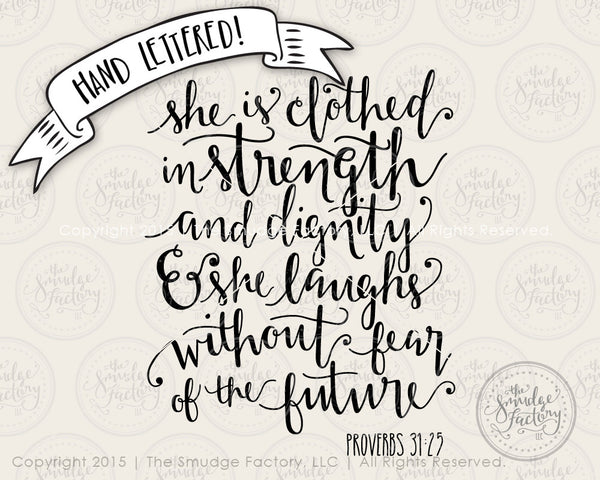 HAND LETTERED!
she is clothed
in strength
and dignity
& she laughs
without fear
of the future
PROVERBS 31:25
Copyright 2015 | The Smudge Factory, LLC | All Rights Reserved.
the
Smudge
Factory
LLC
Copyright 2015 | The Smudge Factory, LLC | All Rights Reserved.